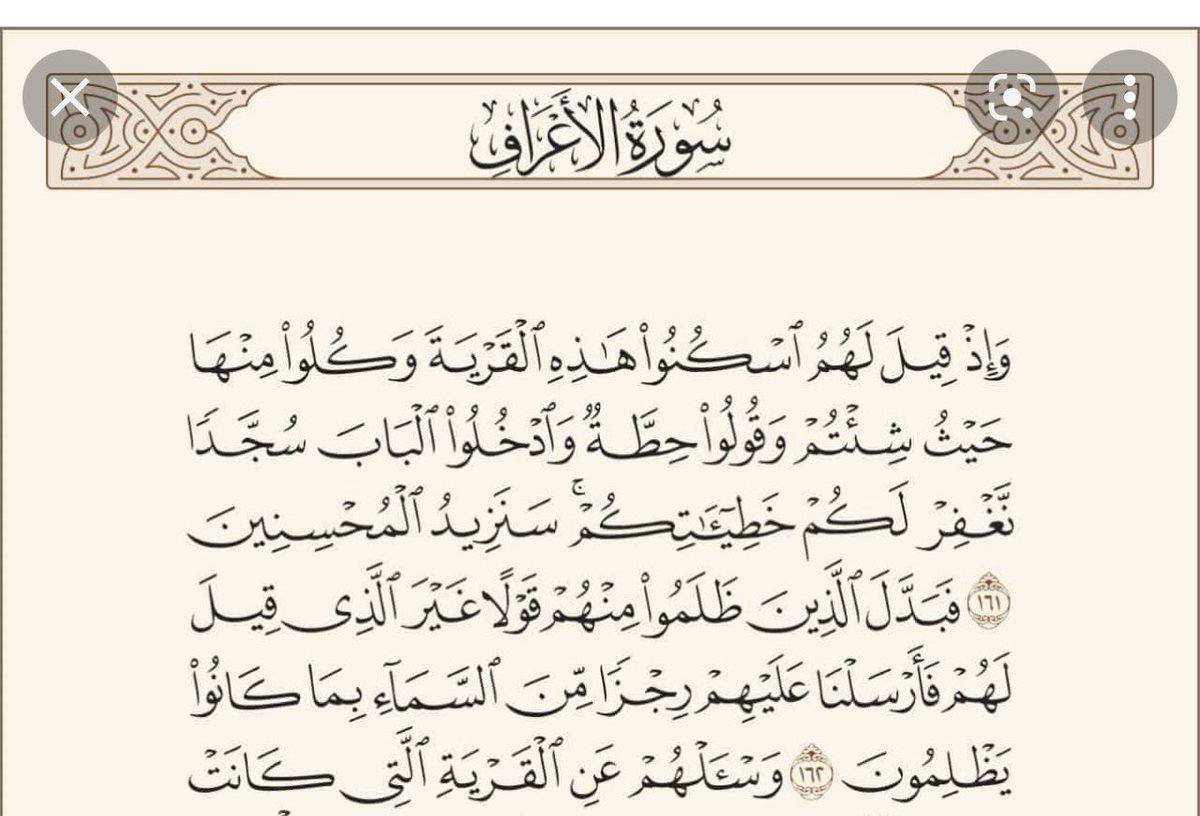 سُورَةُ الأَعْرَافِ
وَإِذْ قِيلَ لَهُمُ ٱسْكُنُوا۟ هَـٰذِهِ ٱلْقَرْيَةَ وَكُلُوا۟ مِنْهَا
حَيْثُ شِئْتُمْ وَقُولُوا۟ حِطَّةٌ وَٱدْخُلُوا۟ ٱلْبَابَ سُجَّدًا
نَّغْفِرْ لَكُمْ خَطِيٓـَٔـٰتِكُمْ ۚ سَنَزِيدُ ٱلْمُحْسِنِينَ
١٦١ فَبَدَّلَ ٱلَّذِينَ ظَلَمُوا۟ مِنْهُمْ قَوْلًا غَيْرَ ٱلَّذِى قِيلَ
لَهُمْ فَأَرْسَلْنَا عَلَيْهِمْ رِجْزًا مِّنَ ٱلسَّمَآءِ بِمَا كَانُوا۟
يَظْلِمُونَ ١٦٢ وَسْـَٔلْهُمْ عَنِ ٱلْقَرْيَةِ ٱلَّتِى كَانَتْ